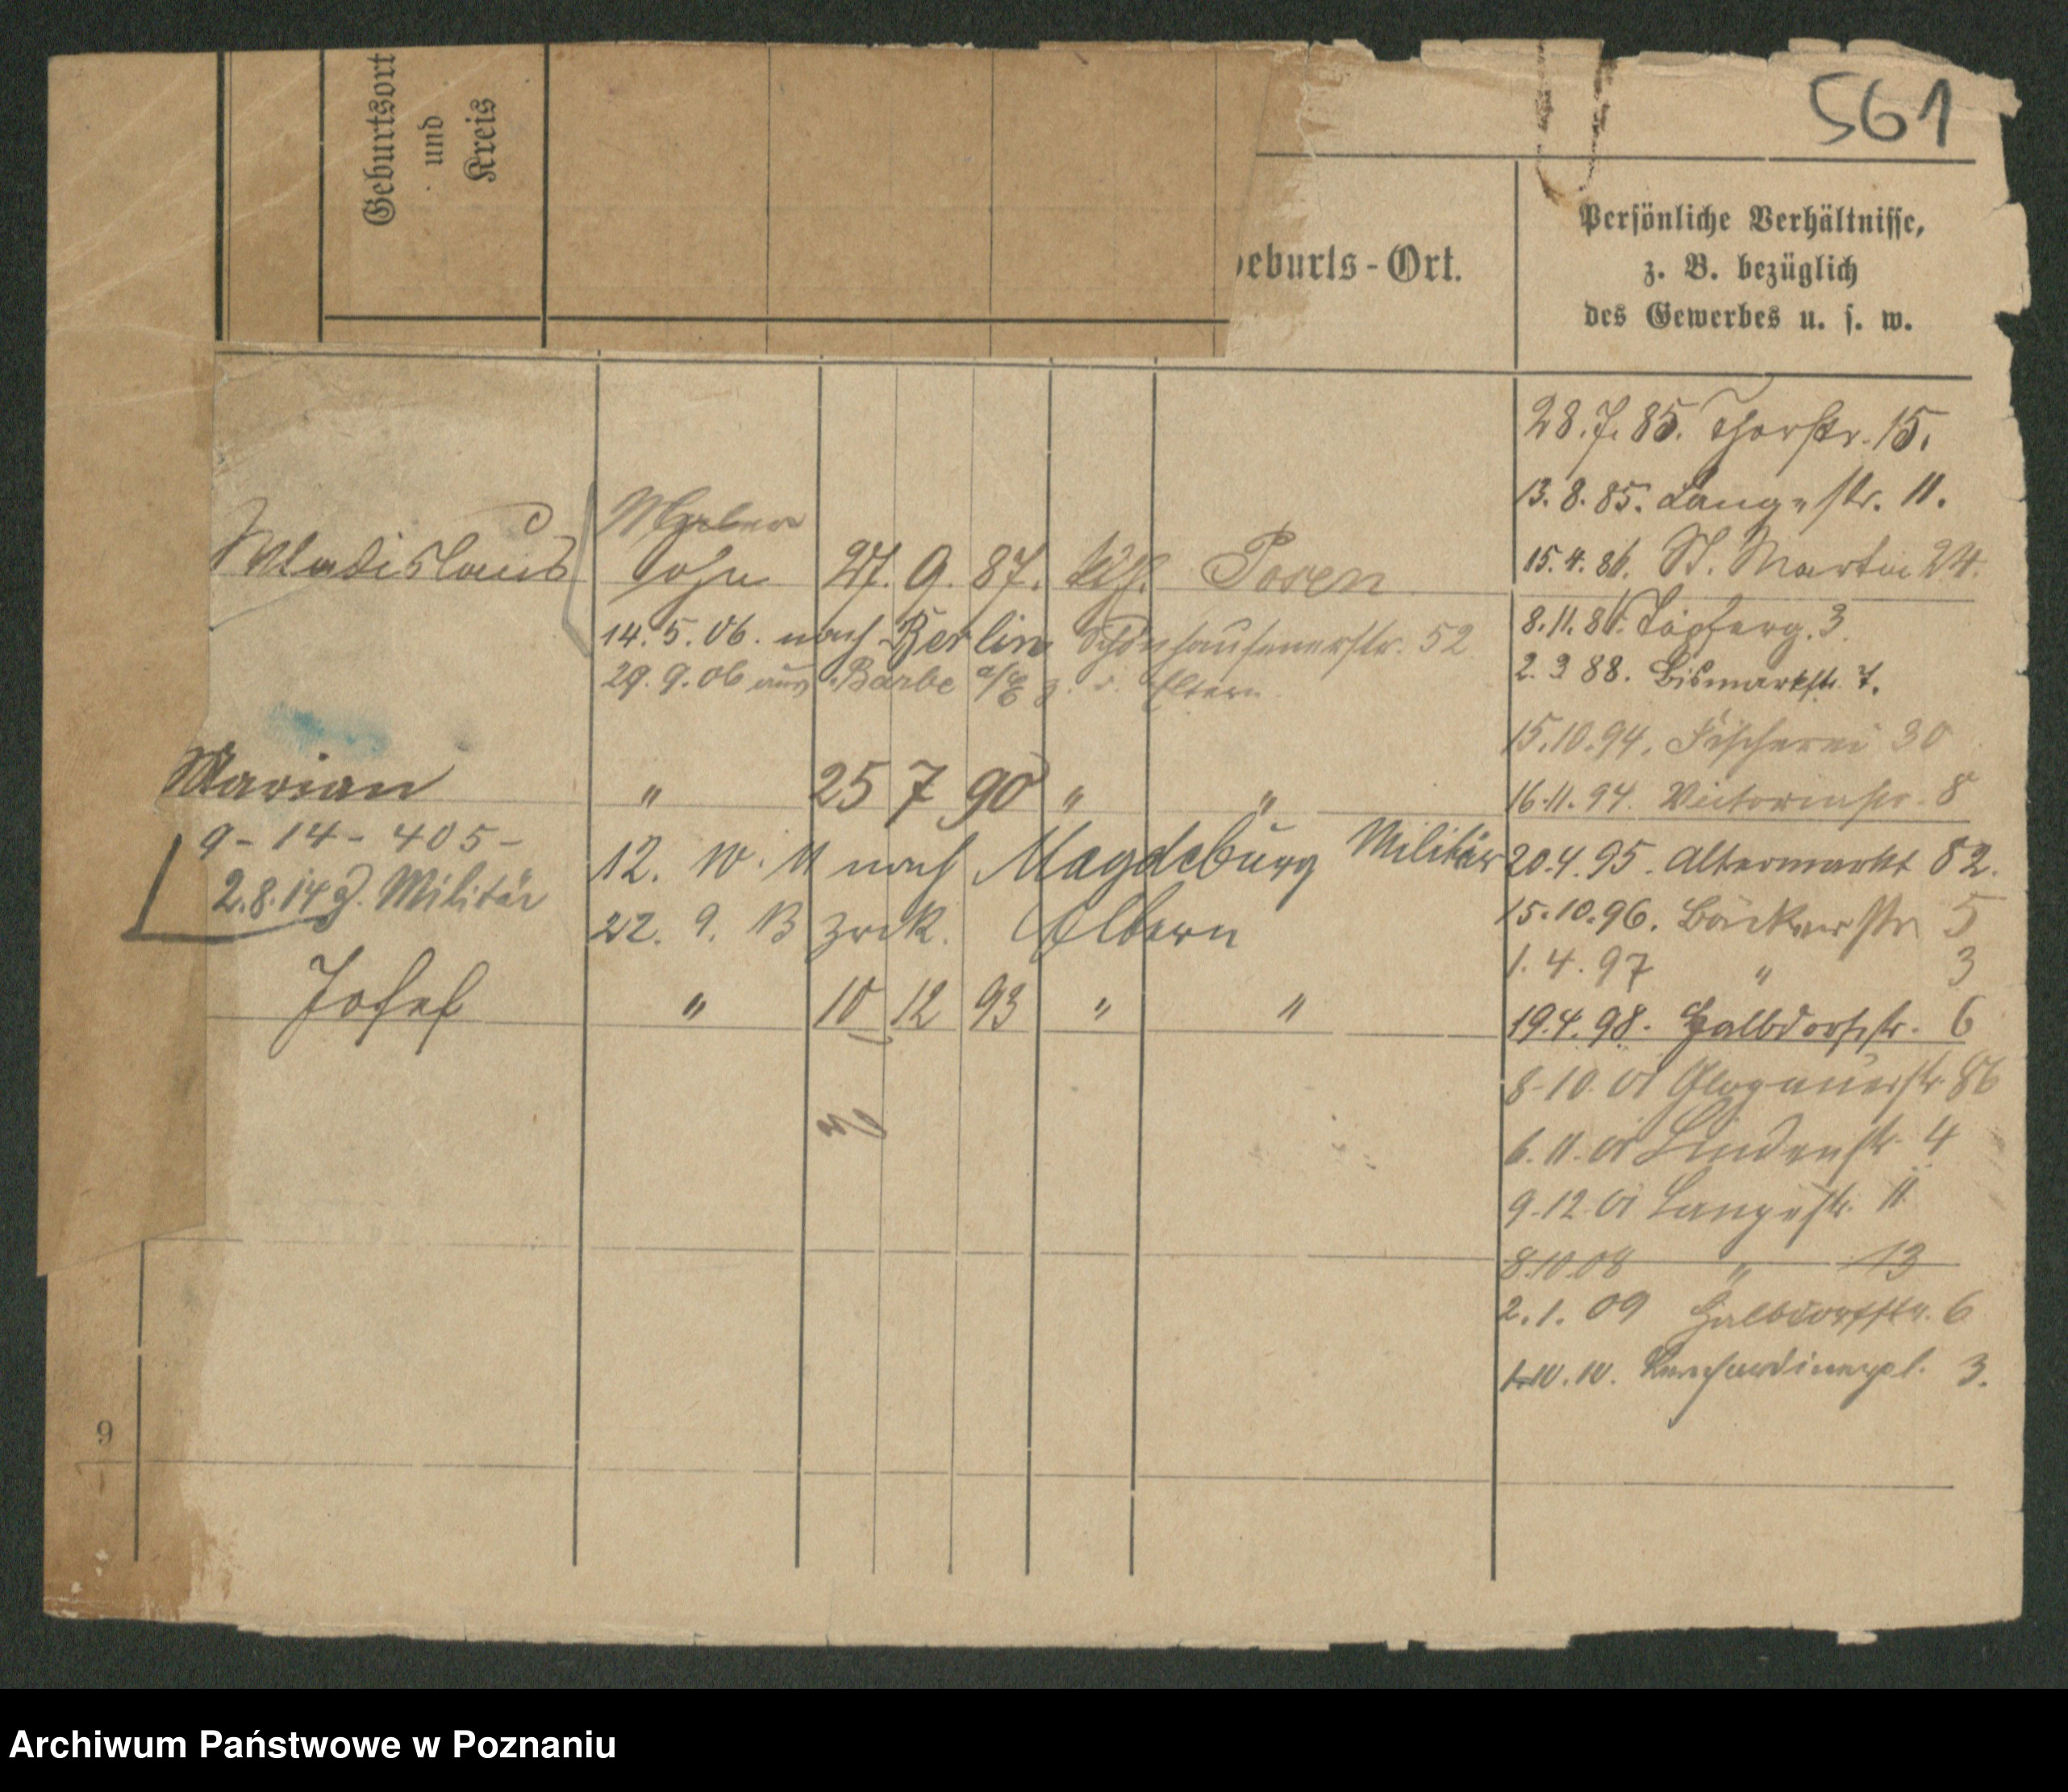 561
Geburtsort
und
Kreis
Geburts-Ort.
Persönliche Verhältnisse,
z. B. bezüglich
des Gewerbes u. s. w.
Wladislaus Sohn 27. 9. 87. kth. Posen
14. 5. 06. nach Berlin Schönhauserstr. 52
29. 9. 06 aus Barbe a/E z. d. Eltern
Marian " 25 7 90 " "
9-14-405-
2.8.14 z. Militär
12. 10. 11 nach Magdeburg Militär
22. 9. 13 zrck. Eltern
Josef " 10 12 93 " "
28.7.85. Thorstr. 15.
13.8.85. Langestr. 11.
15.4.86. St. Martin 24.
8.11.86. Töpferg. 3.
2.3 88. Bismarkstr. 7.
15.10.94. Fischerei 30
16.11.94. Victoriastr. 8
20.4.95. Altermarkt 82.
15.10.96. Bäckerstr 5
1.4.97 " 3
19.4.98. Halbdorfstr. 6
8.10.01 Glogauerstr. 86
6.11.01 Lindenstr. 4
9.12.01 Langestr. 11
8.10.08 " 13
2.1.09 Halbdorfstr. 6
1.10.10. Bernhardinerpl. 3.
9
Archiwum Państwowe w Poznaniu